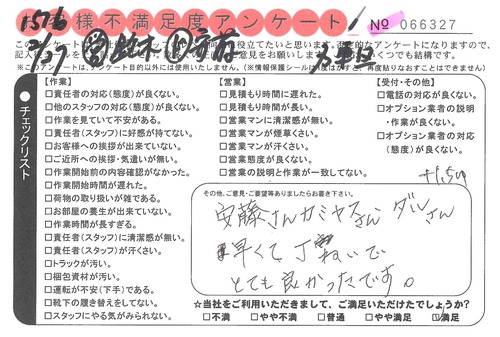 1576
様不満足度アンケート!
No 066327
2/27
鈴木
【作業】
□責任者の対応(態度)が良くない。
□他のスタッフの対応(態度)が良くない。
□作業を見ていて不安がある。
□責任者(スタッフ)に好感が持てない。
□お客様への挨拶が出来ていない。
□ご近所への挨拶・気遣いが無い。
□作業開始前の内容確認がなかった。
□作業開始時間が遅れた。
□荷物の取り扱いが雑である。
□お部屋の養生が出来ていない。
□作業時間が長すぎる。
□責任者(スタッフ)に清潔感が無い。
□責任者(スタッフ)が汗くさい。
□トラックが汚い。
□梱包資材が汚い。
□運転が不安(下手)である。
□靴下の履き替えをしてない。
□スタッフにやる気がみられない。
【営業】
□見積もり時間に遅れた。
□見積もり時間が長い。
□営業マンに清潔感が無い。
□営業マンが煙草くさい。
□営業マンが汗くさい。
□営業態度が良くない。
□営業の説明と作業が一致してない。
【受付・その他】
□電話の対応が良くない。
□オプション業者の説明
・作業が良くない。
□オプション業者の対応
(態度)が良くない。
チェックリスト
その他、ご意見・ご要望等ありましたらお書き下さい。
安藤さんカミヤマさん ダルさん
早くて丁ねいで
とても良かったです。
☆当社をご利用いただきまして、ご満足いただけたでしょうか?
□不満 □やや不満 □普通 □やや満足 ☑満足